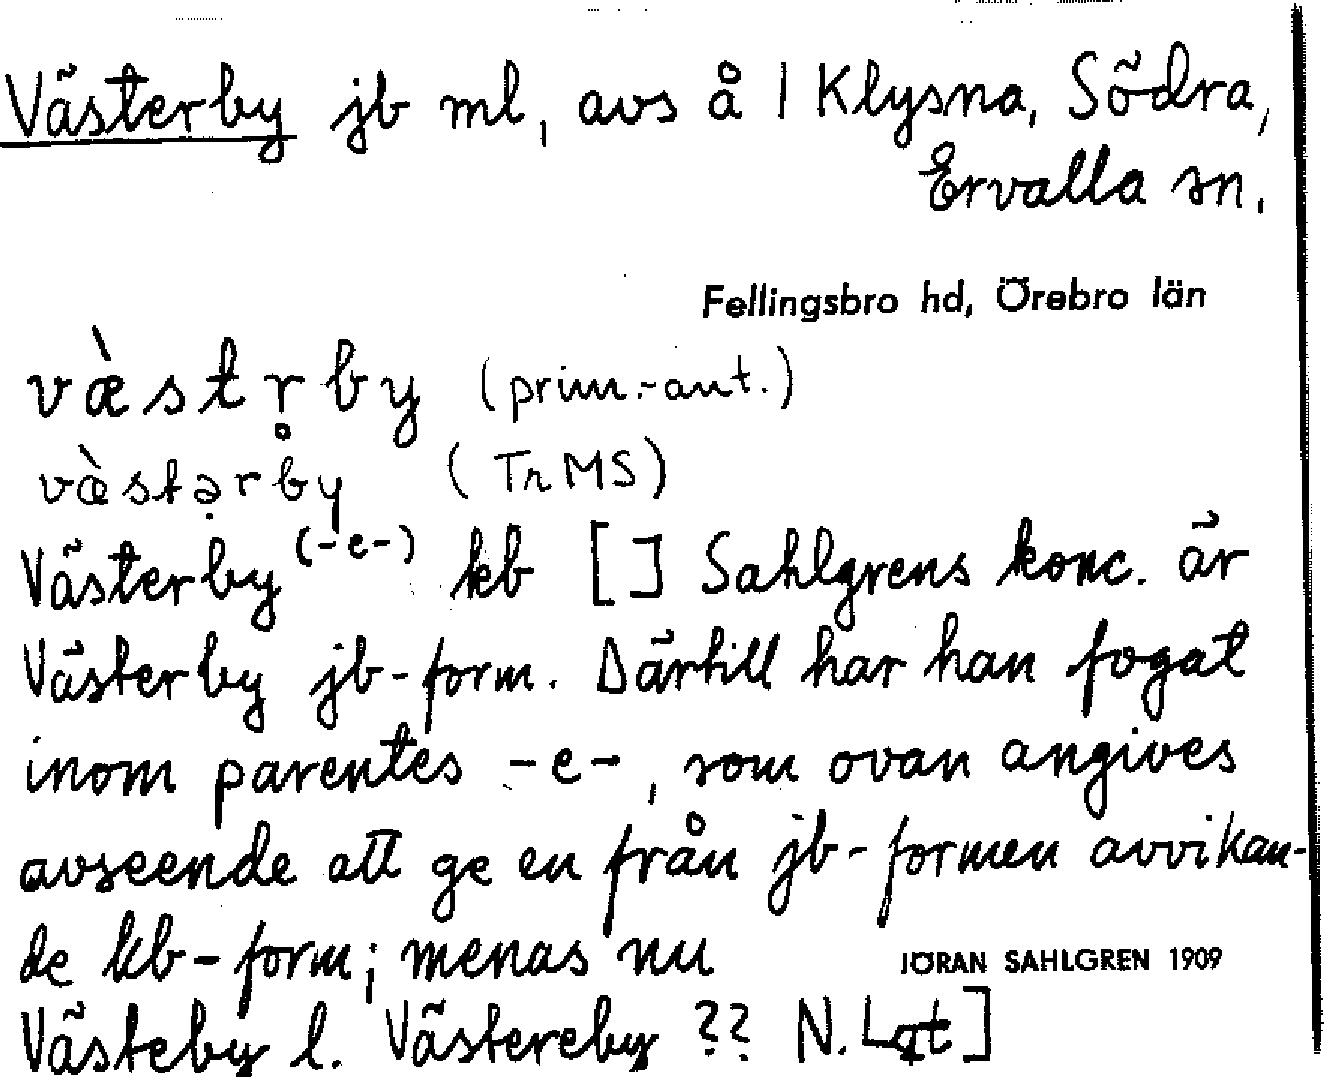 Västerby jb ml, avs å / Klysna, Södra,
Ervalla sn.
Fellingsbro hd, Örebro län
væ̀str̥by (prim.-ant.)
væ̀stə̣rby (TrMS)
Västerby (-e-) kb [ ] Sahlgrens konc. är
Västerby jb-form. Därtill har han fogat
inom parentes -e-, som ovan angives
avseende att ge en från jb-formen avvikan-
de kb-form; menas nu
JÖRAN SAHLGREN 1909
Västeby l. Västereby ?? N. Lqt]